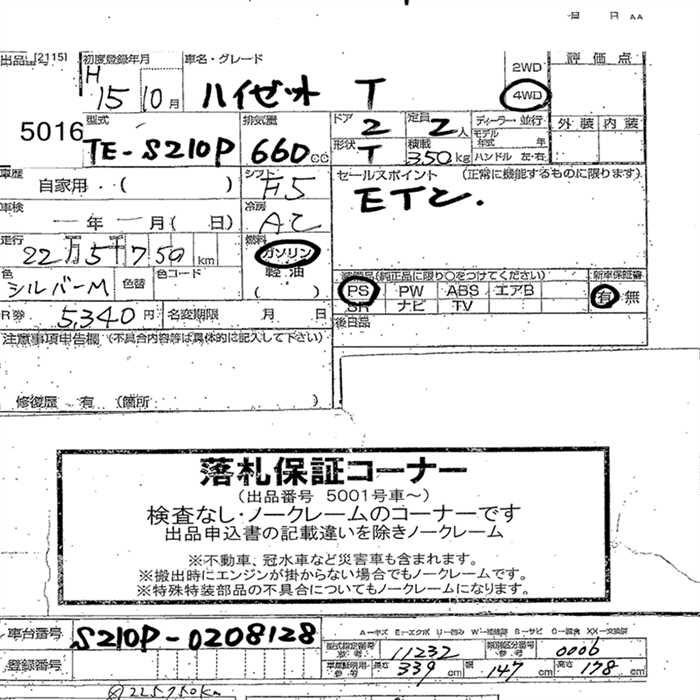 月 日 AA
出品 [2115] 初度登録年月 車名・グレード 2WD 評価点
H 15 10月 ハイゼット T 4WD
5016 型式 排気量 ドア 2 定員 2人 ディーラー・並行 外装 内装
TE-S210P 660cc 形状 T 積載 350kg モデル年式 年 ハンドル 左・右
車歴 自家用・( ) シフト F5 セールスポイント (正常に機能するものに限ります)
車検 ― 年 月( 日) 冷房 AC ETC.
走行 22万5千750km 燃料 ガソリン
色 シルバーM 色替 色コード 軽油 ( )
装備品(純正品に限り○をつけてください) 新車保証書
PS PW ABS エアB 有 無
SR ナビ TV
R券 5,340円 名変期限 月 日 後日品
注意事項申告欄 (不具合内容等は具体的に記入して下さい)
修復歴 有 (箇所 )
落札保証コーナー
(出品番号 5001号車〜)
検査なし・ノークレームのコーナーです
出品申込書の記載違いを除きノークレーム
※不動車、冠水車など災害車も含まれます。
※搬出時にエンジンが掛からない場合でもノークレームです。
※特殊特装部品の不具合についてもノークレームになります。
車台番号 S210P-0208128
型式指定番号 参考 11232 類別区分番号 参考 0006
登録番号 長さ 339cm 幅 147cm 高さ 178cm
225750km